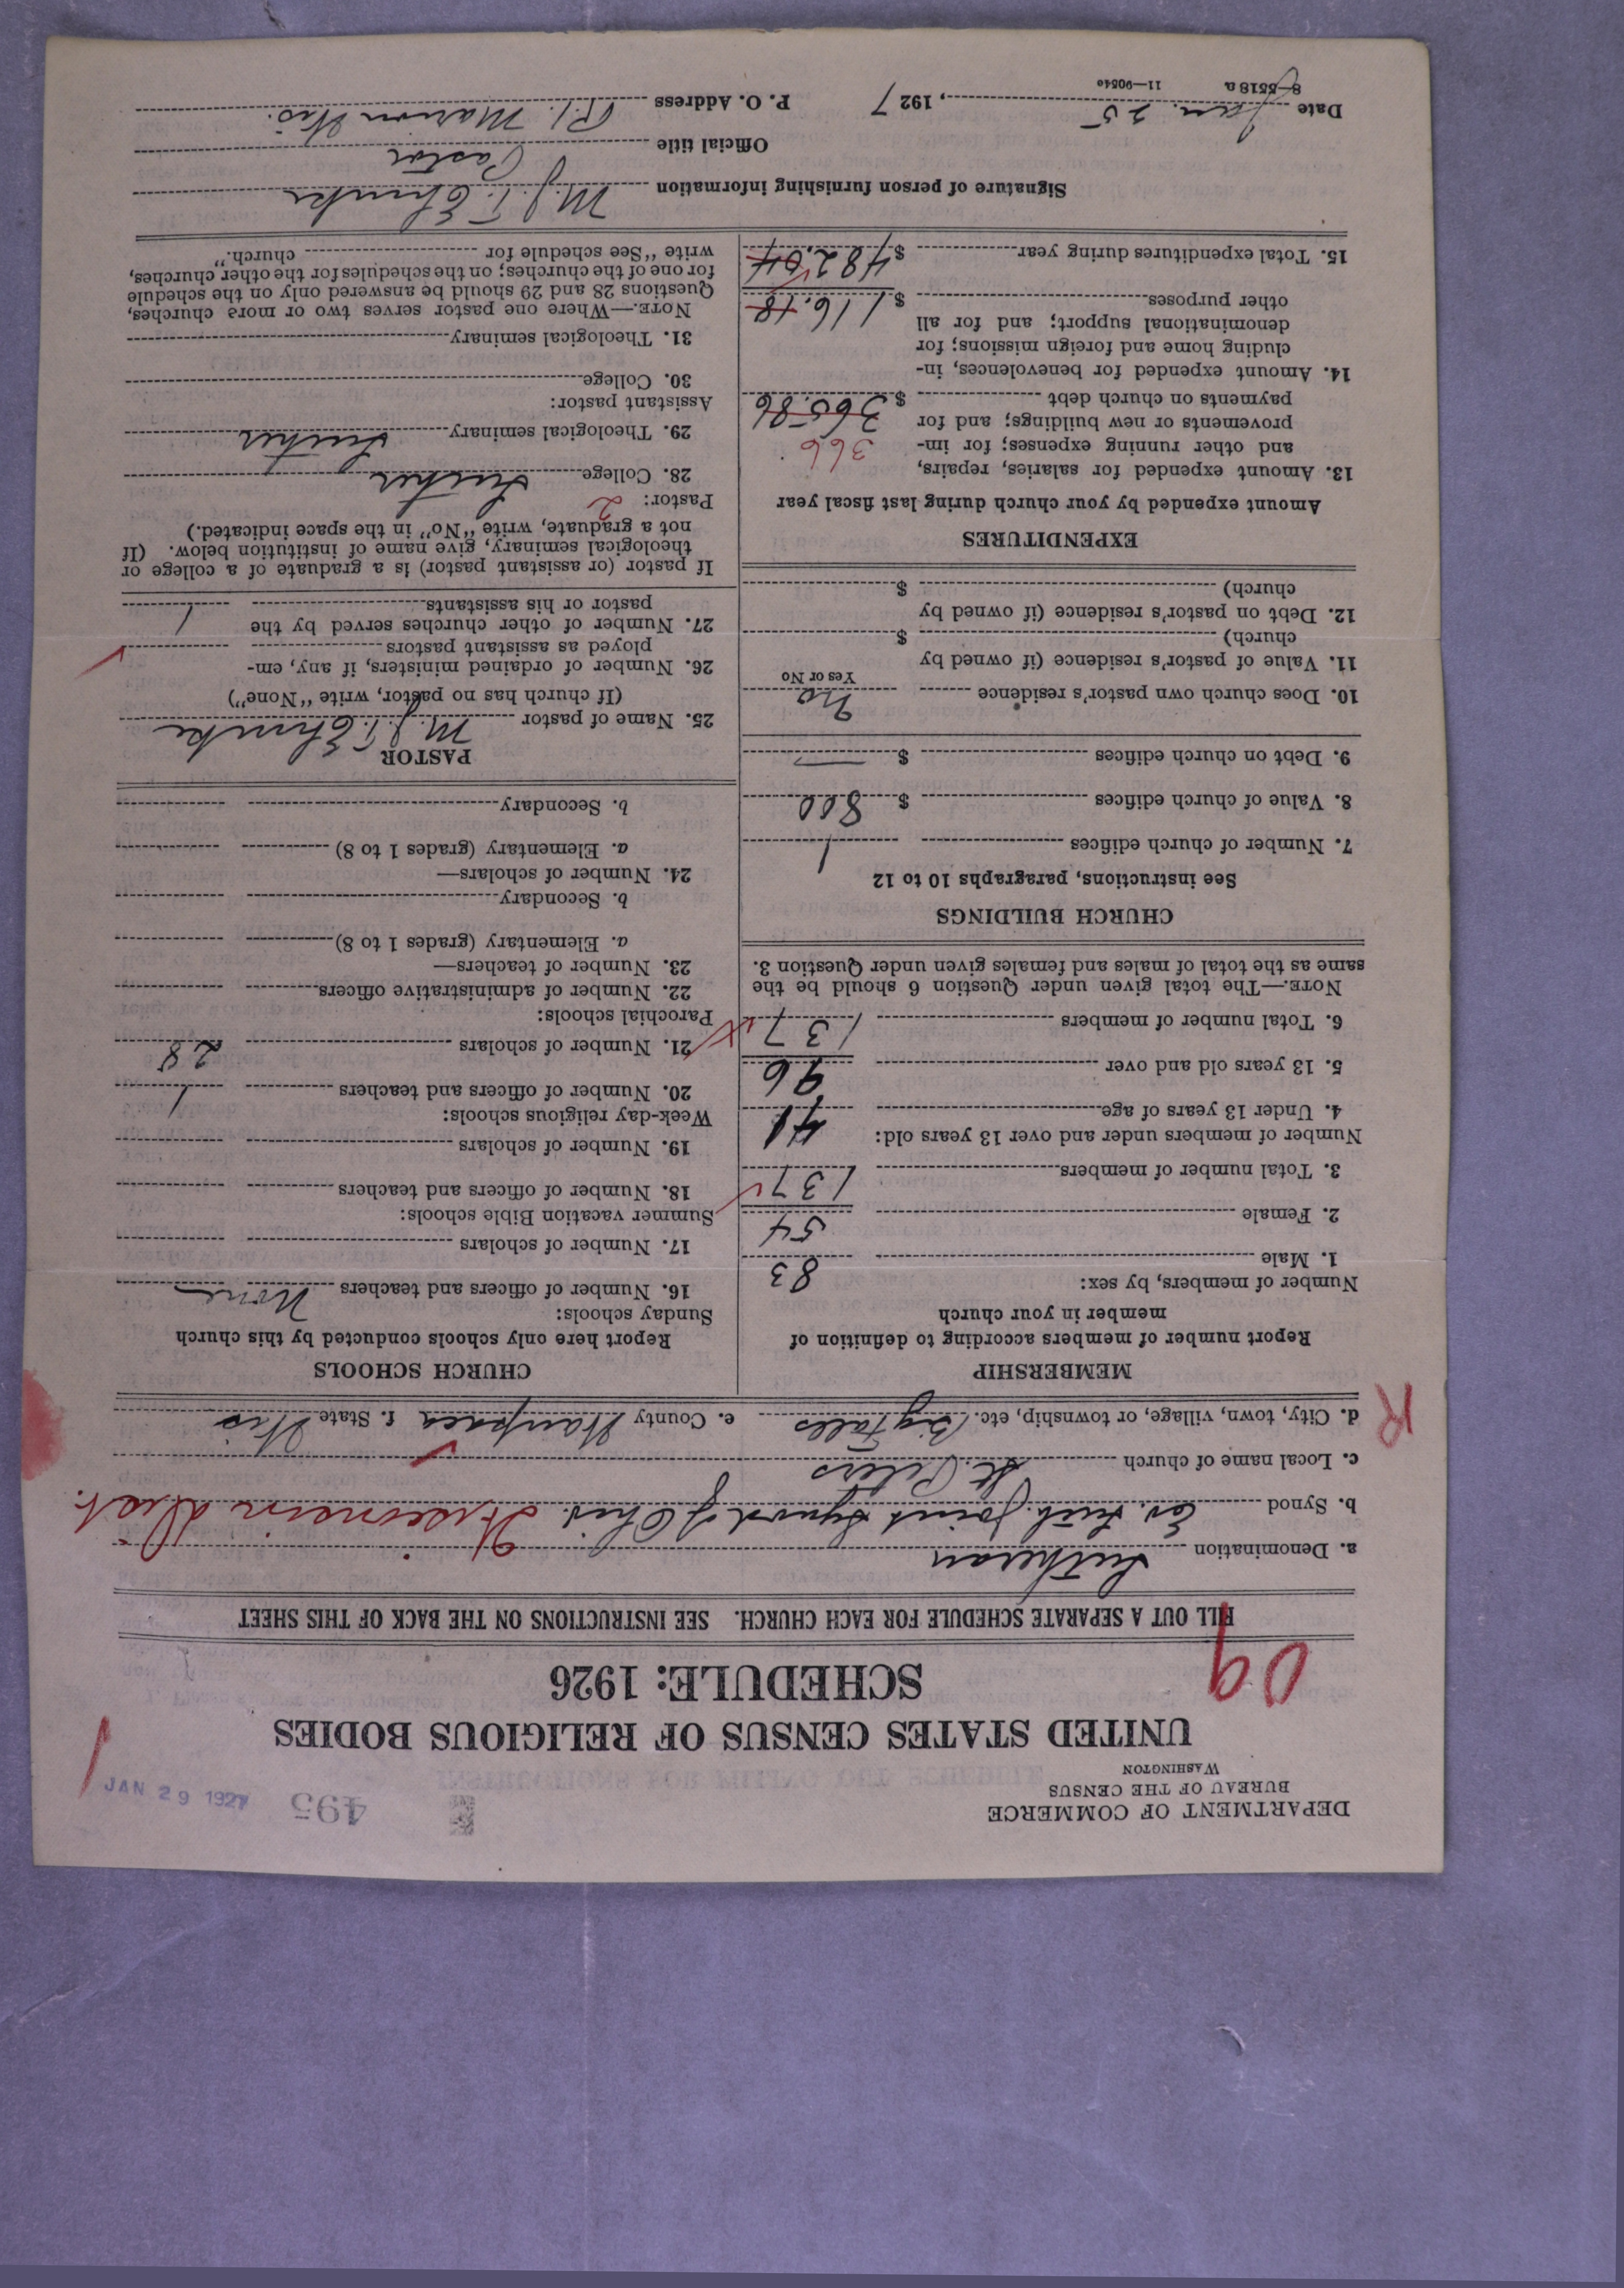 DEPARTMENT OF COMMERCE
BUREAU OF THE CENSUS
WASHINGTON
495
JAN 29 1927
1
UNITED STATES CENSUS OF RELIGIOUS BODIES
SCHEDULE: 1926
09
FILL OUT A SEPARATE SCHEDULE FOR EACH CHURCH. SEE INSTRUCTIONS ON THE BACK OF THIS SHEET
a. Denomination Lutheran
b. Synod Ev. Luth. Joint Synod of Ohio. Wisconsin Dist.
c. Local name of church St. Peters
d. City, town, village, or township, etc. Big Falls e. County Waupaca f. State Wis
R
MEMBERSHIP
Report number of members according to definition of
member in your church
Number of members, by sex:
1. Male 83
2. Female 54
3. Total number of members 137
Number of members under and over 13 years old:
4. Under 13 years of age 41
5. 13 years old and over 96
6. Total number of members 137
NOTE.—The total given under Question 6 should be the
same as the total of males and females given under Question 3.
CHURCH BUILDINGS
See instructions, paragraphs 10 to 12
7. Number of church edifices 1
8. Value of church edifices $ 800
9. Debt on church edifices $ —
10. Does church own pastor's residence no
Yes or No
11. Value of pastor's residence (if owned by
church) $
12. Debt on pastor's residence (if owned by
church) $
EXPENDITURES
Amount expended by your church during last fiscal year
13. Amount expended for salaries, repairs,
and other running expenses; for im- 366
provements or new buildings; and for
payments on church debt $ 365.86
14. Amount expended for benevolences, in-
cluding home and foreign missions; for
denominational support; and for all
other purposes $ 116.18
15. Total expenditures during year $ 482.04
CHURCH SCHOOLS
Report here only schools conducted by this church
Sunday schools:
16. Number of officers and teachers None
17. Number of scholars
Summer vacation Bible schools:
18. Number of officers and teachers
19. Number of scholars
Week-day religious schools:
20. Number of officers and teachers 1
21. Number of scholars 28
Parochial schools:
22. Number of administrative officers
23. Number of teachers—
a. Elementary (grades 1 to 8)
b. Secondary
24. Number of scholars—
a. Elementary (grades 1 to 8)
b. Secondary
PASTOR
25. Name of pastor M. J. F. Ehmke
(If church has no pastor, write "None")
26. Number of ordained ministers, if any, em-
ployed as assistant pastors
27. Number of other churches served by the
pastor or his assistants 1
If pastor (or assistant pastor) is a graduate of a college or
theological seminary, give name of institution below. (If
not a graduate, write "No" in the space indicated.)
Pastor: 2
28. College Luther
29. Theological seminary Luther
Assistant pastor:
30. College
31. Theological seminary
NOTE.—Where one pastor serves two or more churches,
Questions 28 and 29 should be answered only on the schedule
for one of the churches; on the schedules for the other churches,
write "See schedule for church."
Signature of person furnishing information M. J. F. Ehmke
Official title Pastor
Date Jan. 25, 1927 P. O. Address R.1. Marion Wis.
8—5518 a 11—9054o